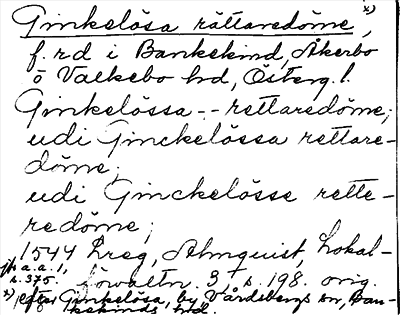 Ginkelösa rättaredöme, x)
f.r.d i Bankekind, Åkerbo
o Valkebo hd, Österg. l.
Ginkelössa -- rettaredöme;
udi Ginckelössa rettare-
döme;
udi Ginckelösse rette-
redöme;
1544 Lreg, Almquist, Lokal-
förvaltn. 3, s. 198. orig.
jfr a.a. 1,
s. 375.
x) efter Ginkelösa, by Vårdsbergs sn, Ban-
kekinds hd.